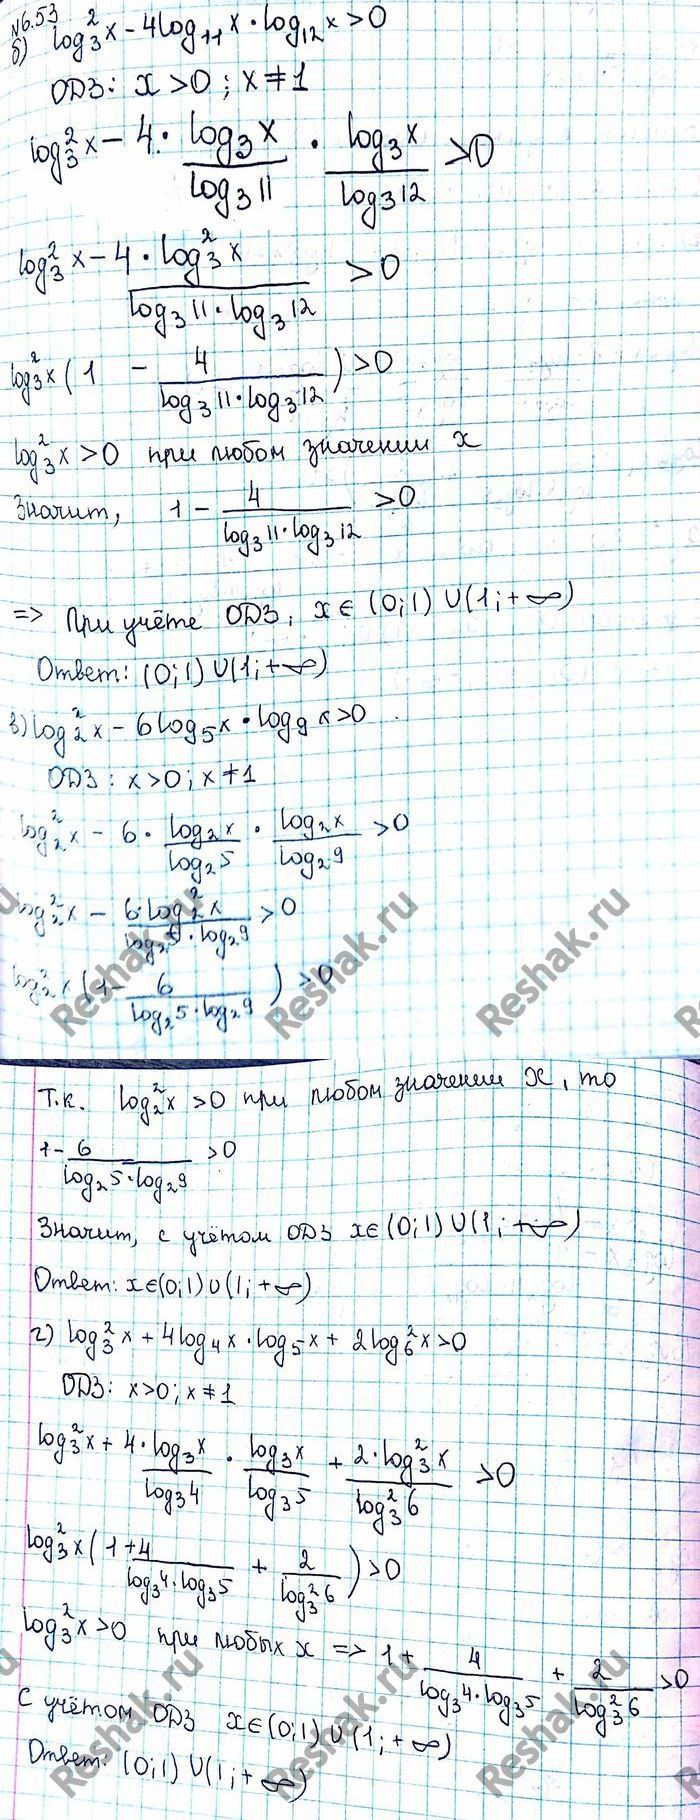 №6.53
б) log₃²x - 4log₁₁x · log₁₂x > 0
ОДЗ: x > 0 ; x ≠ 1
log₃²x - 4 · log₃x / log₃11 · log₃x / log₃12 > 0
log₃²x - 4 · log₃²x / (log₃11 · log₃12) > 0
log₃²x (1 - 4 / (log₃11 · log₃12)) > 0
log₃²x > 0 при любом значении x
Значит, 1 - 4 / (log₃11 · log₃12) > 0
=> При учёте ОДЗ, x ∈ (0;1) ∪ (1;+∞)
Ответ: (0;1) ∪ (1;+∞)
в) log₂²x - 6log₅x · log₉x > 0
ОДЗ : x > 0 ; x ≠ 1
log₂²x - 6 · log₂x / log₂5 · log₂x / log₂9 > 0
log₂²x - 6·log₂²x / (log₂5 · log₂9) > 0
log₂²x (1 - 6 / (log₂5 · log₂9)) > 0
Reshak.ru Reshak.ru Reshak.ru
Т.к. log₂²x > 0 при любом значении x, то
1 - 6 / (log₂5 · log₂9) > 0
Значит, с учётом ОДЗ x ∈ (0;1) ∪ (1;+∞)
Ответ: x ∈ (0;1) ∪ (1;+∞)
г) log₃²x + 4log₄x · log₅x + 2log₆²x > 0
ОДЗ: x > 0 ; x ≠ 1
log₃²x + 4·log₃x / log₃4 · log₃x / log₃5 + 2·log₃²x / log₃²6 > 0
log₃²x (1 + 4 / (log₃4 · log₃5) + 2 / log₃²6) > 0
log₃²x > 0 при любых x => 1 + 4 / (log₃4 · log₃5) + 2 / log₃²6 > 0
С учётом ОДЗ x ∈ (0;1) ∪ (1;+∞)
Ответ: (0;1) ∪ (1;+∞)
Reshak.ru Reshak.ru Reshak.ru